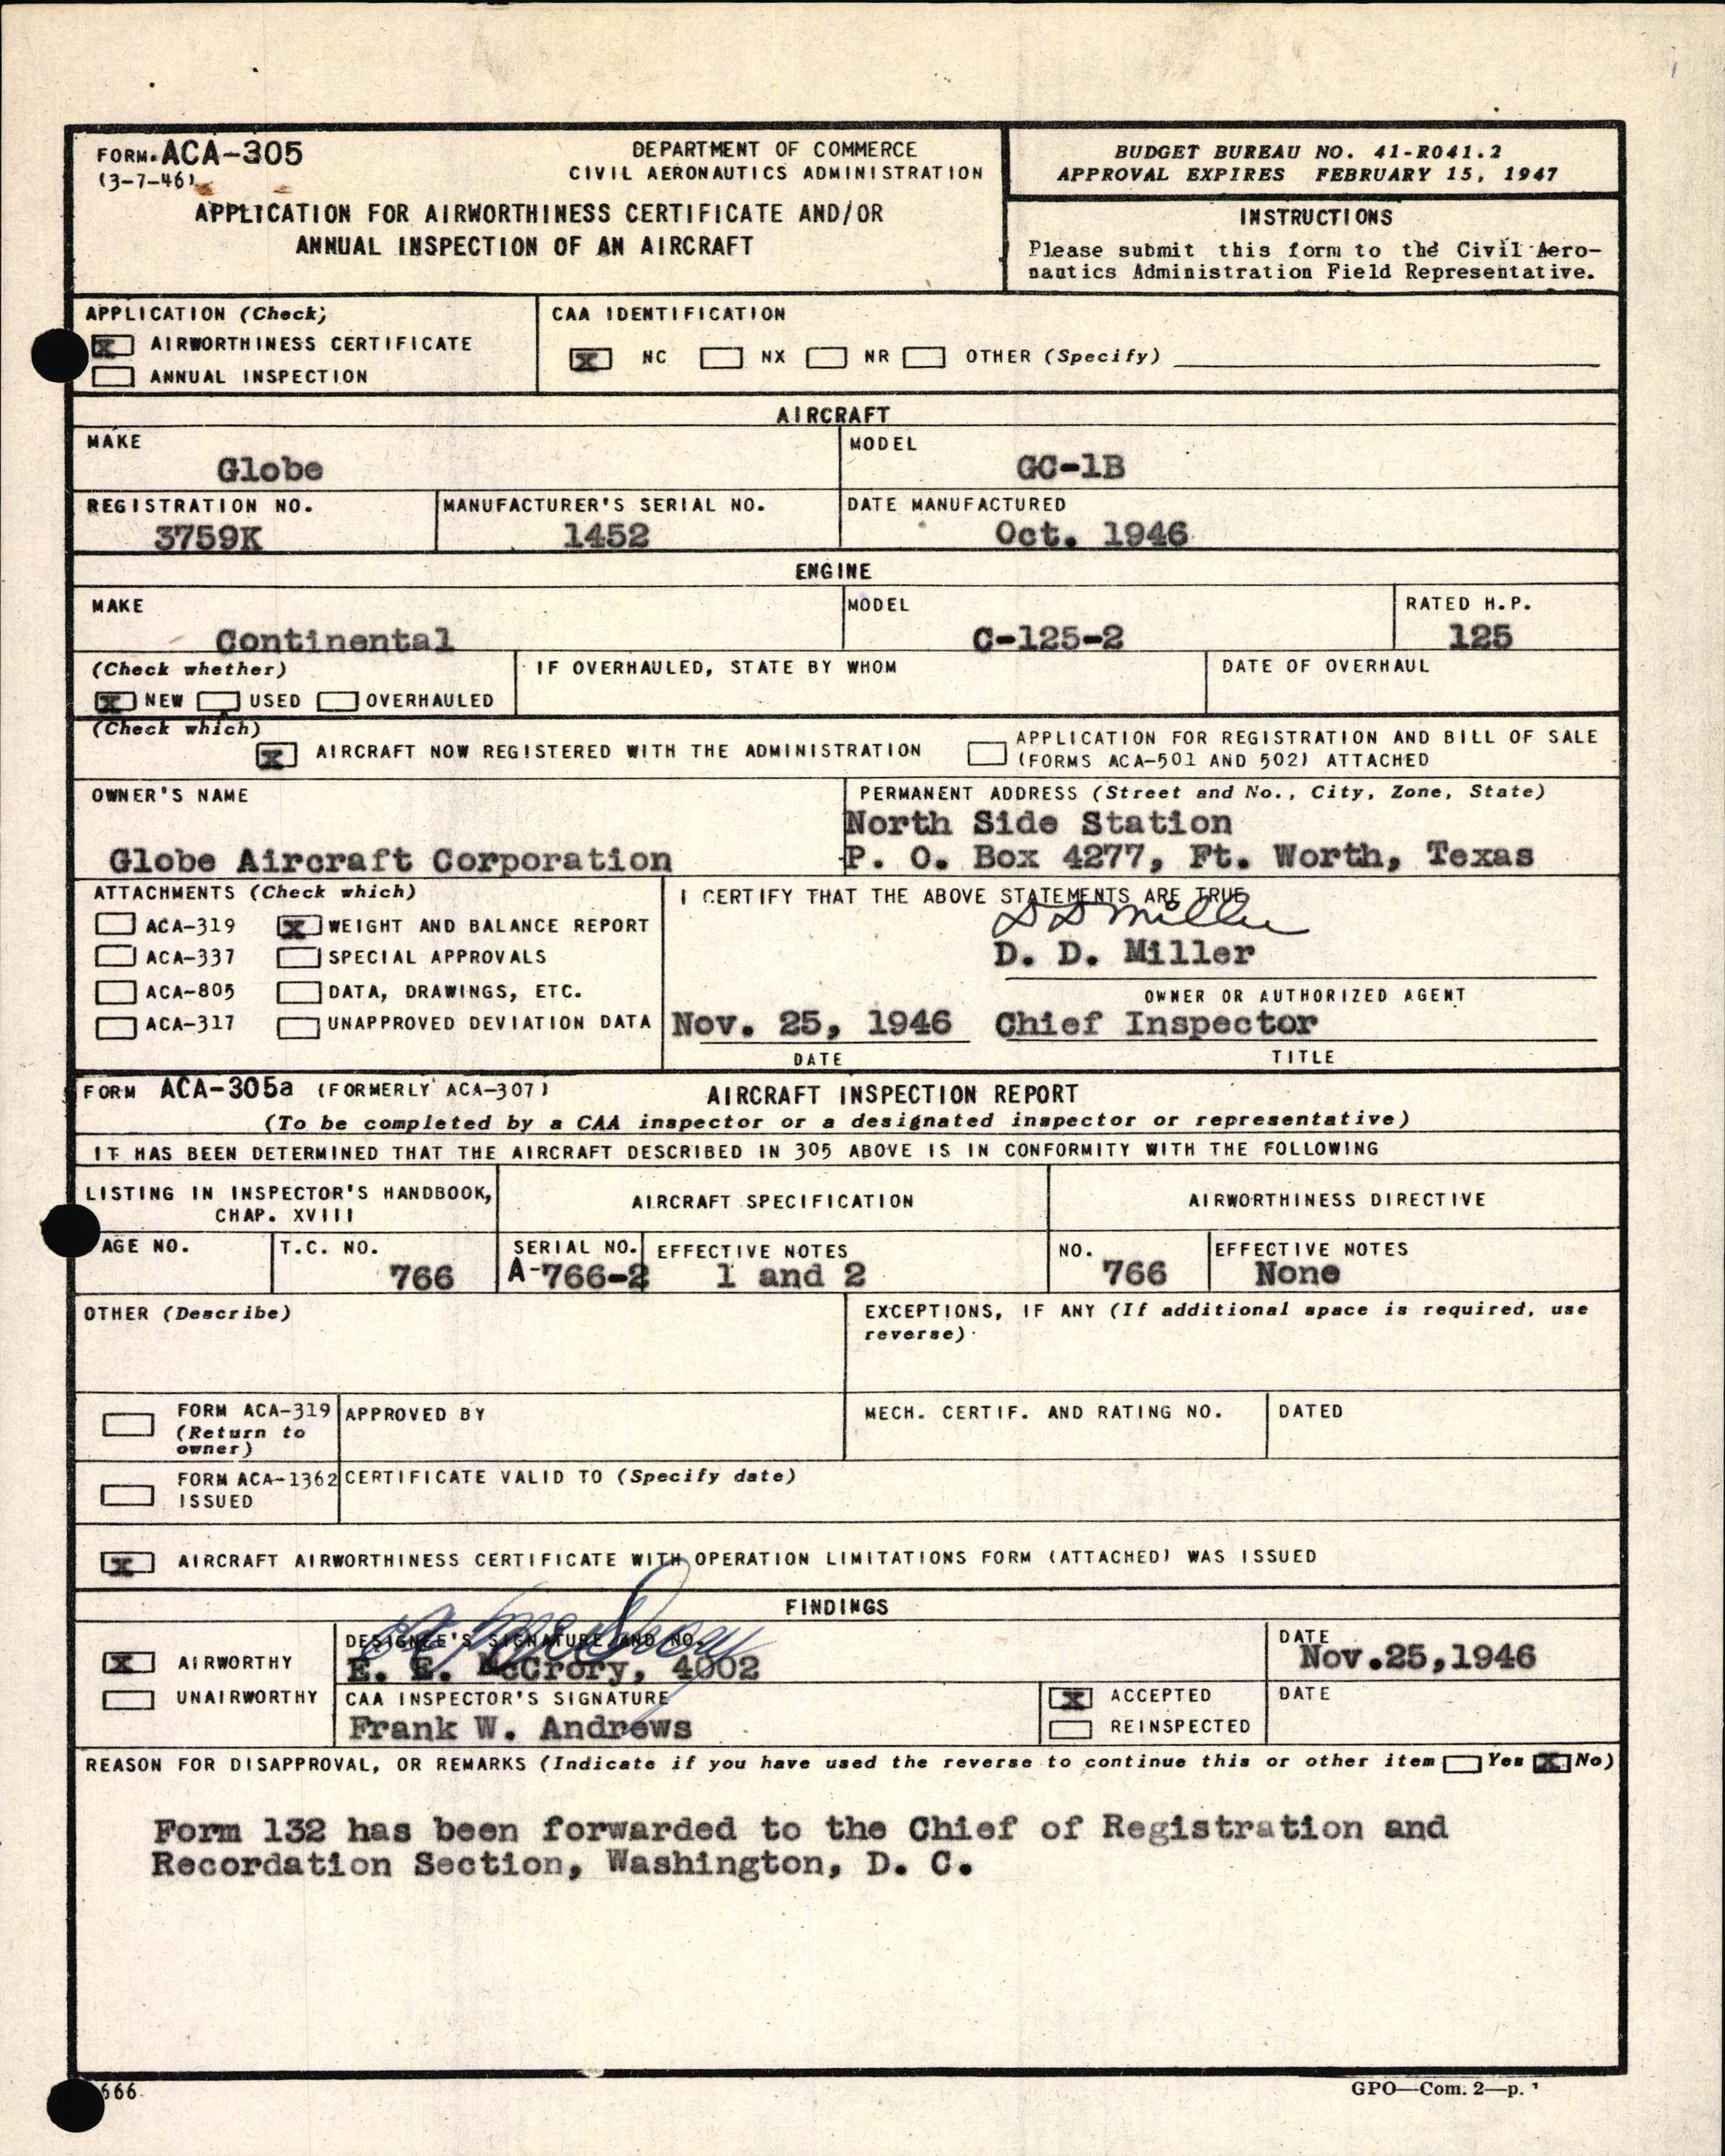 FORM. ACA-305
(3-7-46)
DEPARTMENT OF COMMERCE
CIVIL AERONAUTICS ADMINISTRATION
APPLICATION FOR AIRWORTHINESS CERTIFICATE AND/OR
ANNUAL INSPECTION OF AN AIRCRAFT
BUDGET BUREAU NO. 41-R041.2
APPROVAL EXPIRES FEBRUARY 15, 1947
INSTRUCTIONS
Please submit this form to the Civil Aero-
nautics Administration Field Representative.
APPLICATION (Check)
X AIRWORTHINESS CERTIFICATE
ANNUAL INSPECTION
CAA IDENTIFICATION
X NC NX NR OTHER (Specify)
AIRCRAFT
MAKE
Globe
MODEL
GC-1B
REGISTRATION NO.
3759K
MANUFACTURER'S SERIAL NO.
1452
DATE MANUFACTURED
Oct. 1946
ENGINE
MAKE
Continental
MODEL
C-125-2
RATED H.P.
125
(Check whether)
X NEW USED OVERHAULED
IF OVERHAULED, STATE BY WHOM
DATE OF OVERHAUL
(Check which)
X AIRCRAFT NOW REGISTERED WITH THE ADMINISTRATION
APPLICATION FOR REGISTRATION AND BILL OF SALE
(FORMS ACA-501 AND 502) ATTACHED
OWNER'S NAME
Globe Aircraft Corporation
PERMANENT ADDRESS (Street and No., City, Zone, State)
North Side Station
P. O. Box 4277, Ft. Worth, Texas
ATTACHMENTS (Check which)
ACA-319 X WEIGHT AND BALANCE REPORT
ACA-337 SPECIAL APPROVALS
ACA-805 DATA, DRAWINGS, ETC.
ACA-317 UNAPPROVED DEVIATION DATA
I CERTIFY THAT THE ABOVE STATEMENTS ARE TRUE
D D Miller
D. D. Miller
OWNER OR AUTHORIZED AGENT
Nov. 25, 1946 Chief Inspector
DATE TITLE
FORM ACA-305a (FORMERLY ACA-307) AIRCRAFT INSPECTION REPORT
(To be completed by a CAA inspector or a designated inspector or representative)
IT HAS BEEN DETERMINED THAT THE AIRCRAFT DESCRIBED IN 305 ABOVE IS IN CONFORMITY WITH THE FOLLOWING
LISTING IN INSPECTOR'S HANDBOOK,
CHAP. XVIII
AIRCRAFT SPECIFICATION
AIRWORTHINESS DIRECTIVE
AGE NO.
T.C. NO.
766
SERIAL NO.
A-766-2
EFFECTIVE NOTES
1 and 2
NO.
766
EFFECTIVE NOTES
None
OTHER (Describe)
EXCEPTIONS, IF ANY (If additional space is required, use
reverse)
FORM ACA-319
(Return to
owner)
APPROVED BY
MECH. CERTIF. AND RATING NO.
DATED
FORM ACA-1362
ISSUED
CERTIFICATE VALID TO (Specify date)
X AIRCRAFT AIRWORTHINESS CERTIFICATE WITH OPERATION LIMITATIONS FORM (ATTACHED) WAS ISSUED
FINDINGS
X AIRWORTHY
UNAIRWORTHY
DESIGNEE'S SIGNATURE AND NO.
E. E. McCrory, 4002
DATE
Nov.25,1946
CAA INSPECTOR'S SIGNATURE
Frank W. Andrews
X ACCEPTED
REINSPECTED
DATE
REASON FOR DISAPPROVAL, OR REMARKS (Indicate if you have used the reverse to continue this or other item Yes X No)
Form 132 has been forwarded to the Chief of Registration and
Recordation Section, Washington, D. C.
666
GPO—Com. 2—p.